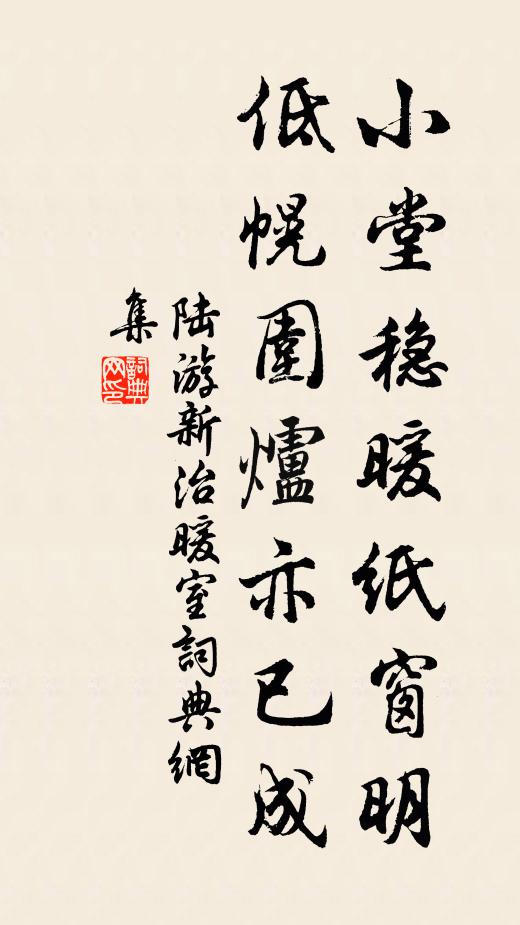 小堂稳暖纸窗明
低幌圍爐亦已成
陆游新治暖室詞典網
集
詞典
网印